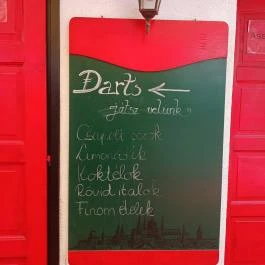 Darts ←
játsz velünk
Csapolt sörök
Limonádék
Koktélok
Rövid italok
Finom ételek